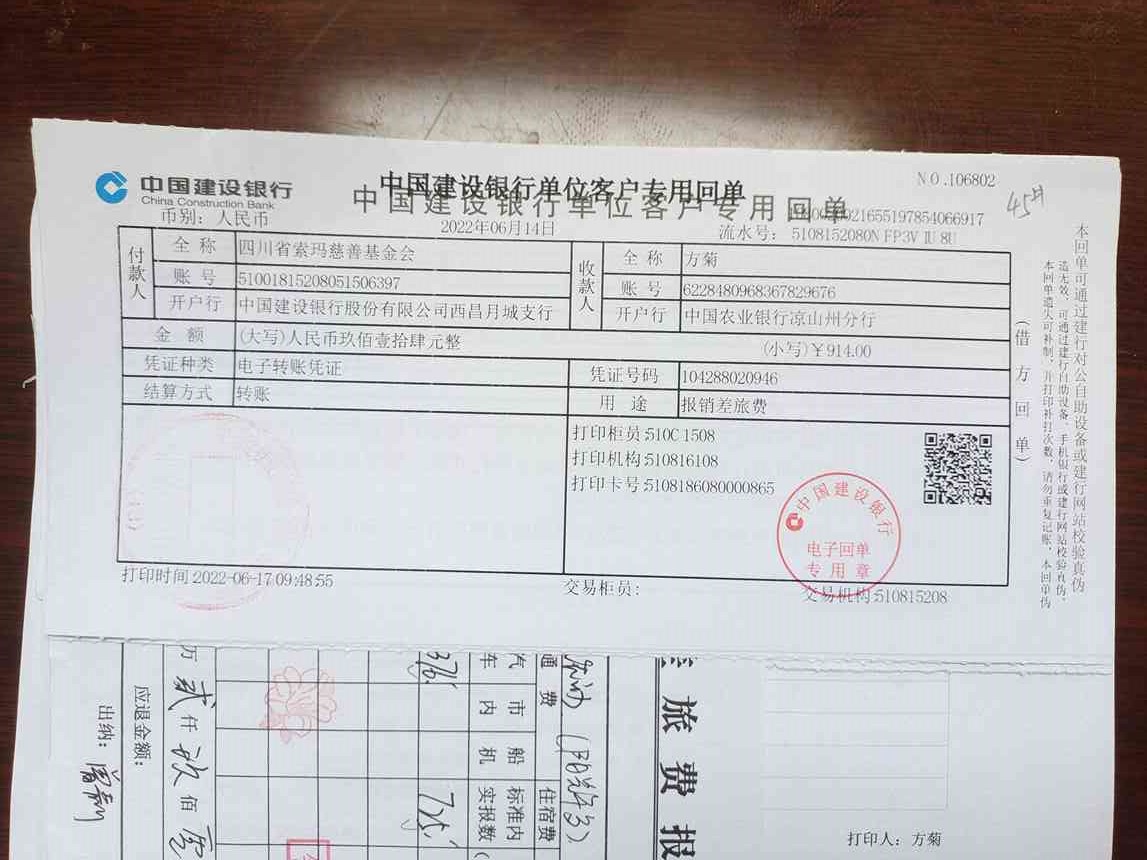 中国建设银行
China Construction Bank
中国建设银行单位客户专用回单
中国建设银行单位客户专用回单
NO.106802
45#
币别：人民币
2022年06月14日
流水号：5108152080N
付款人
全 称
四川省索玛慈善基金会
收款人
全 称
方菊
账 号
51001815208051506397
账 号
6228480968367829676
开户行
中国建设银行股份有限公司西昌月城支行
开户行
中国农业银行凉山州分行
金 额
(大写)人民币玖佰壹拾肆元整
(小写)￥914.00
凭证种类
电子转账凭证
凭证号码
104288020946
结算方式
转账
用 途
报销差旅费
打印柜员:510C1508
打印机构:510816108
打印卡号:5108186080000865
中国建设银行
电子回单
专用章
打印时间:2022-06-17 09:48:55
交易柜员:
交易机构:510815208
(借方回单)
本回单可通过建行对公自助设备或建行网站校验真伪
旅费报
通费
汽车
市内
船机
住宿费
标准内
实报数
376.
725.
万贰仟玖佰零
应退金额:
出纳:
打印人：方菊